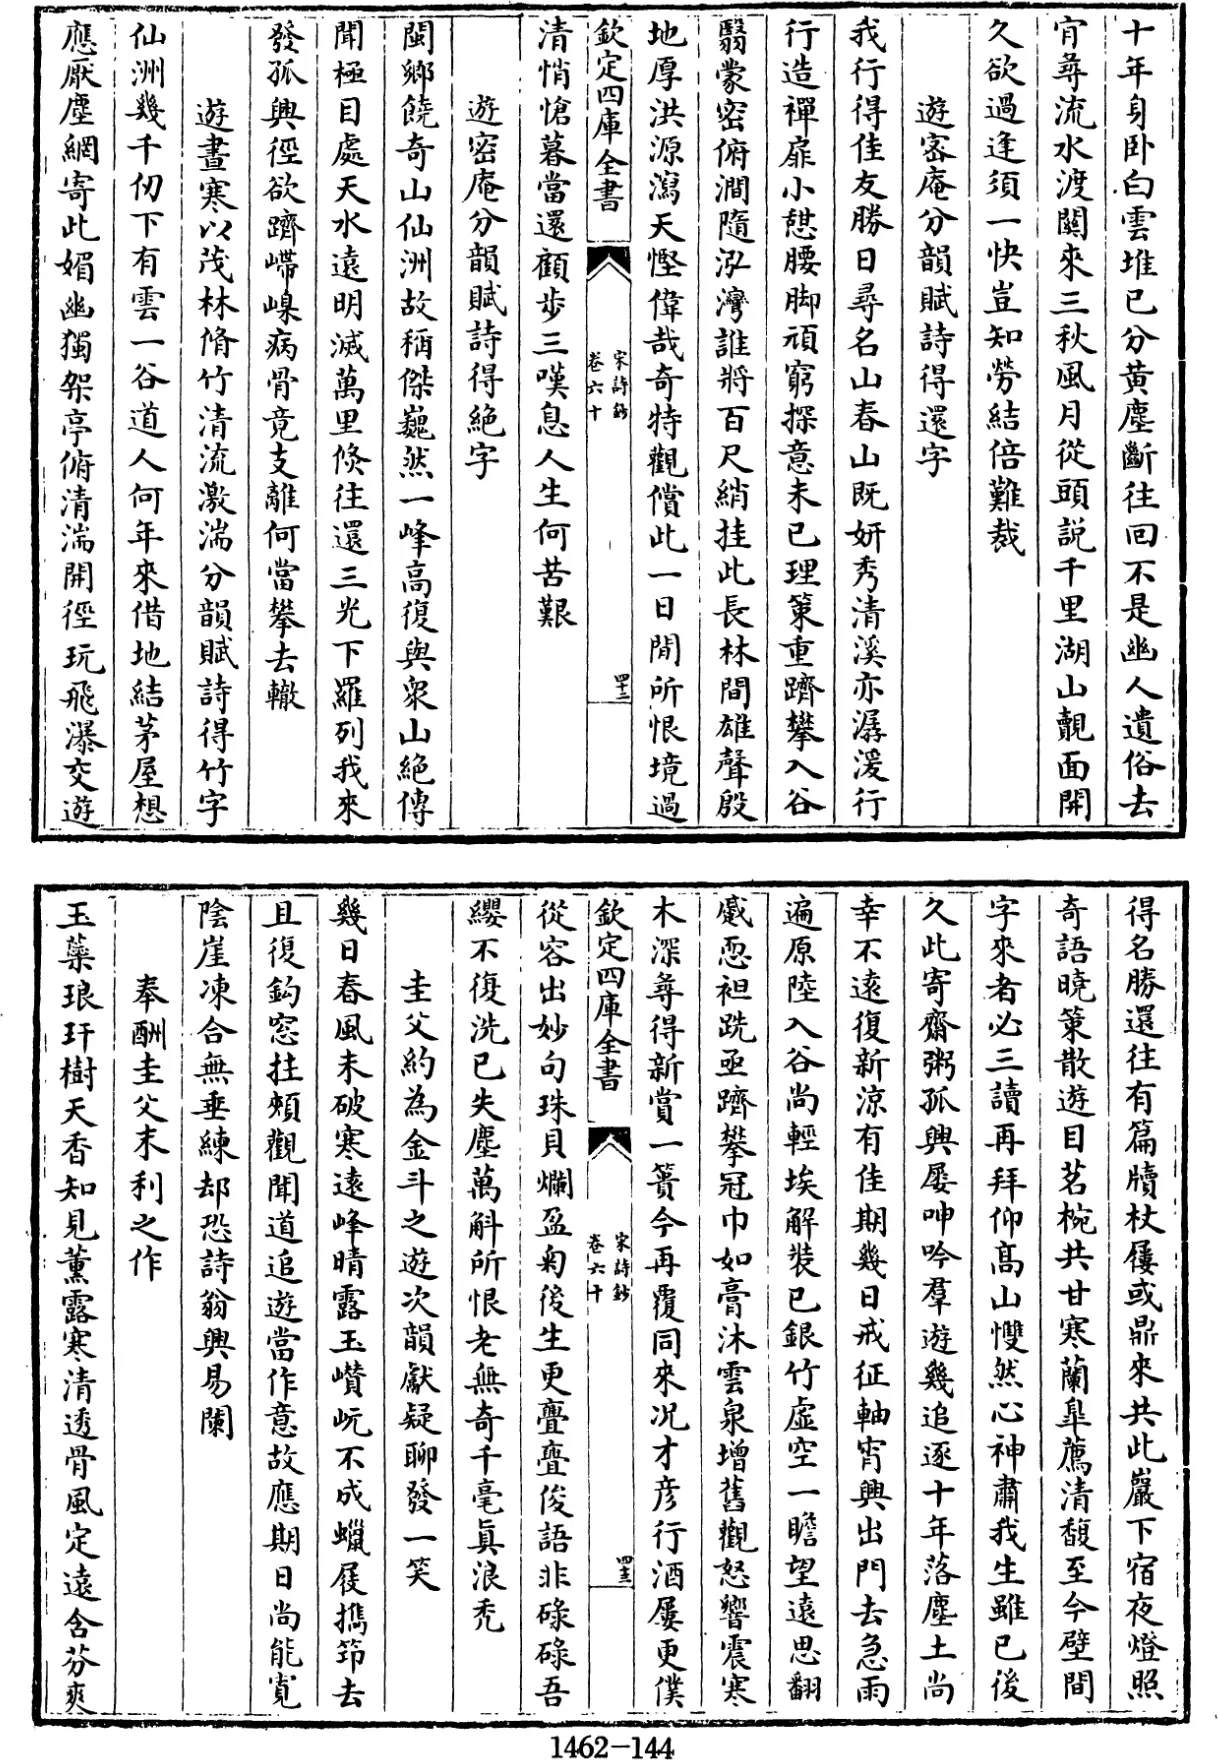 十年身卧白雲堆已分黃塵斷往回不是幽人遺俗去
肎尋流水渡關來三秋風月從頭説千里湖山覿面開
久欲過逢須一快豈知勞結倍難裁
遊密庵分韻賦詩得還字
我行得佳友勝日尋名山春山既妍秀清溪亦潺湲行
行造禪扉小憇腰脚頑窮探意未已理策重躋攀入谷
翳蒙密俯澗隨泓灣誰將百尺綃挂此長林間雄聲殷
地厚洪源瀉天慳偉哉奇特觀償此一日間所恨境過
欽定四庫全書
宋詩鈔
卷六十
四十二
清悄愴暮當還顧步三嘆息人生何苦艱
遊密庵分韻賦詩得絶字
閩鄉饒奇山仙洲故稱傑巍然一峰高復與衆山絶傳
聞極目處天水遠明滅萬里倐往還三光下羅列我來
發孤興徑欲躋嵽嵲病骨竟支離何當攀去轍
遊晝寒以茂林脩竹清流激湍分韻賦詩得竹字
仙洲幾千仞下有雲一谷道人何年來借地結茅屋想
應厭塵網寄此媚幽獨架亭俯清湍開徑玩飛瀑交遊
得名勝還往有篇牘杖屨或鼎來共此巖下宿夜燈照
奇語曉策散遊目茗椀共甘寒蘭臯薦清馥至今壁間
字來者必三讀再拜仰髙山慴然心神肅我生雖已後
久此寄齋粥孤興屢呻吟羣遊幾追逐十年落塵土尚
幸不遠復新涼有佳期幾日戒征軸宵興出門去急雨
遍原陸入谷尚輕埃解裝已銀竹虛空一瞻望遠思翻
蹙恧袒跣亟躋攀冠巾如膏沐雲泉增舊觀怒響震寒
木深尋得新賞一簣今再覆同來况才彦行酒屢更僕
欽定四庫全書
宋詩鈔
卷六十
四十三
從容出妙句珠貝爛盈匊後生更亹亹俊語非碌碌吾
纓不復洗已失塵萬斛所恨老無奇千毫真浪禿
圭父約為金斗之遊次韻獻疑聊發一笑
幾日春風未破寒遠峰晴露玉巑岏不成蠟屐攜筇去
且復鈎窓拄頰觀聞道追遊當作意故應期日尚能寛
陰崖凍合無垂練却恐詩翁興易闌
奉酬圭父末利之作
玉蘂琅玕樹天香知見薰露寒清透骨風定遠含芬爽
1462-144